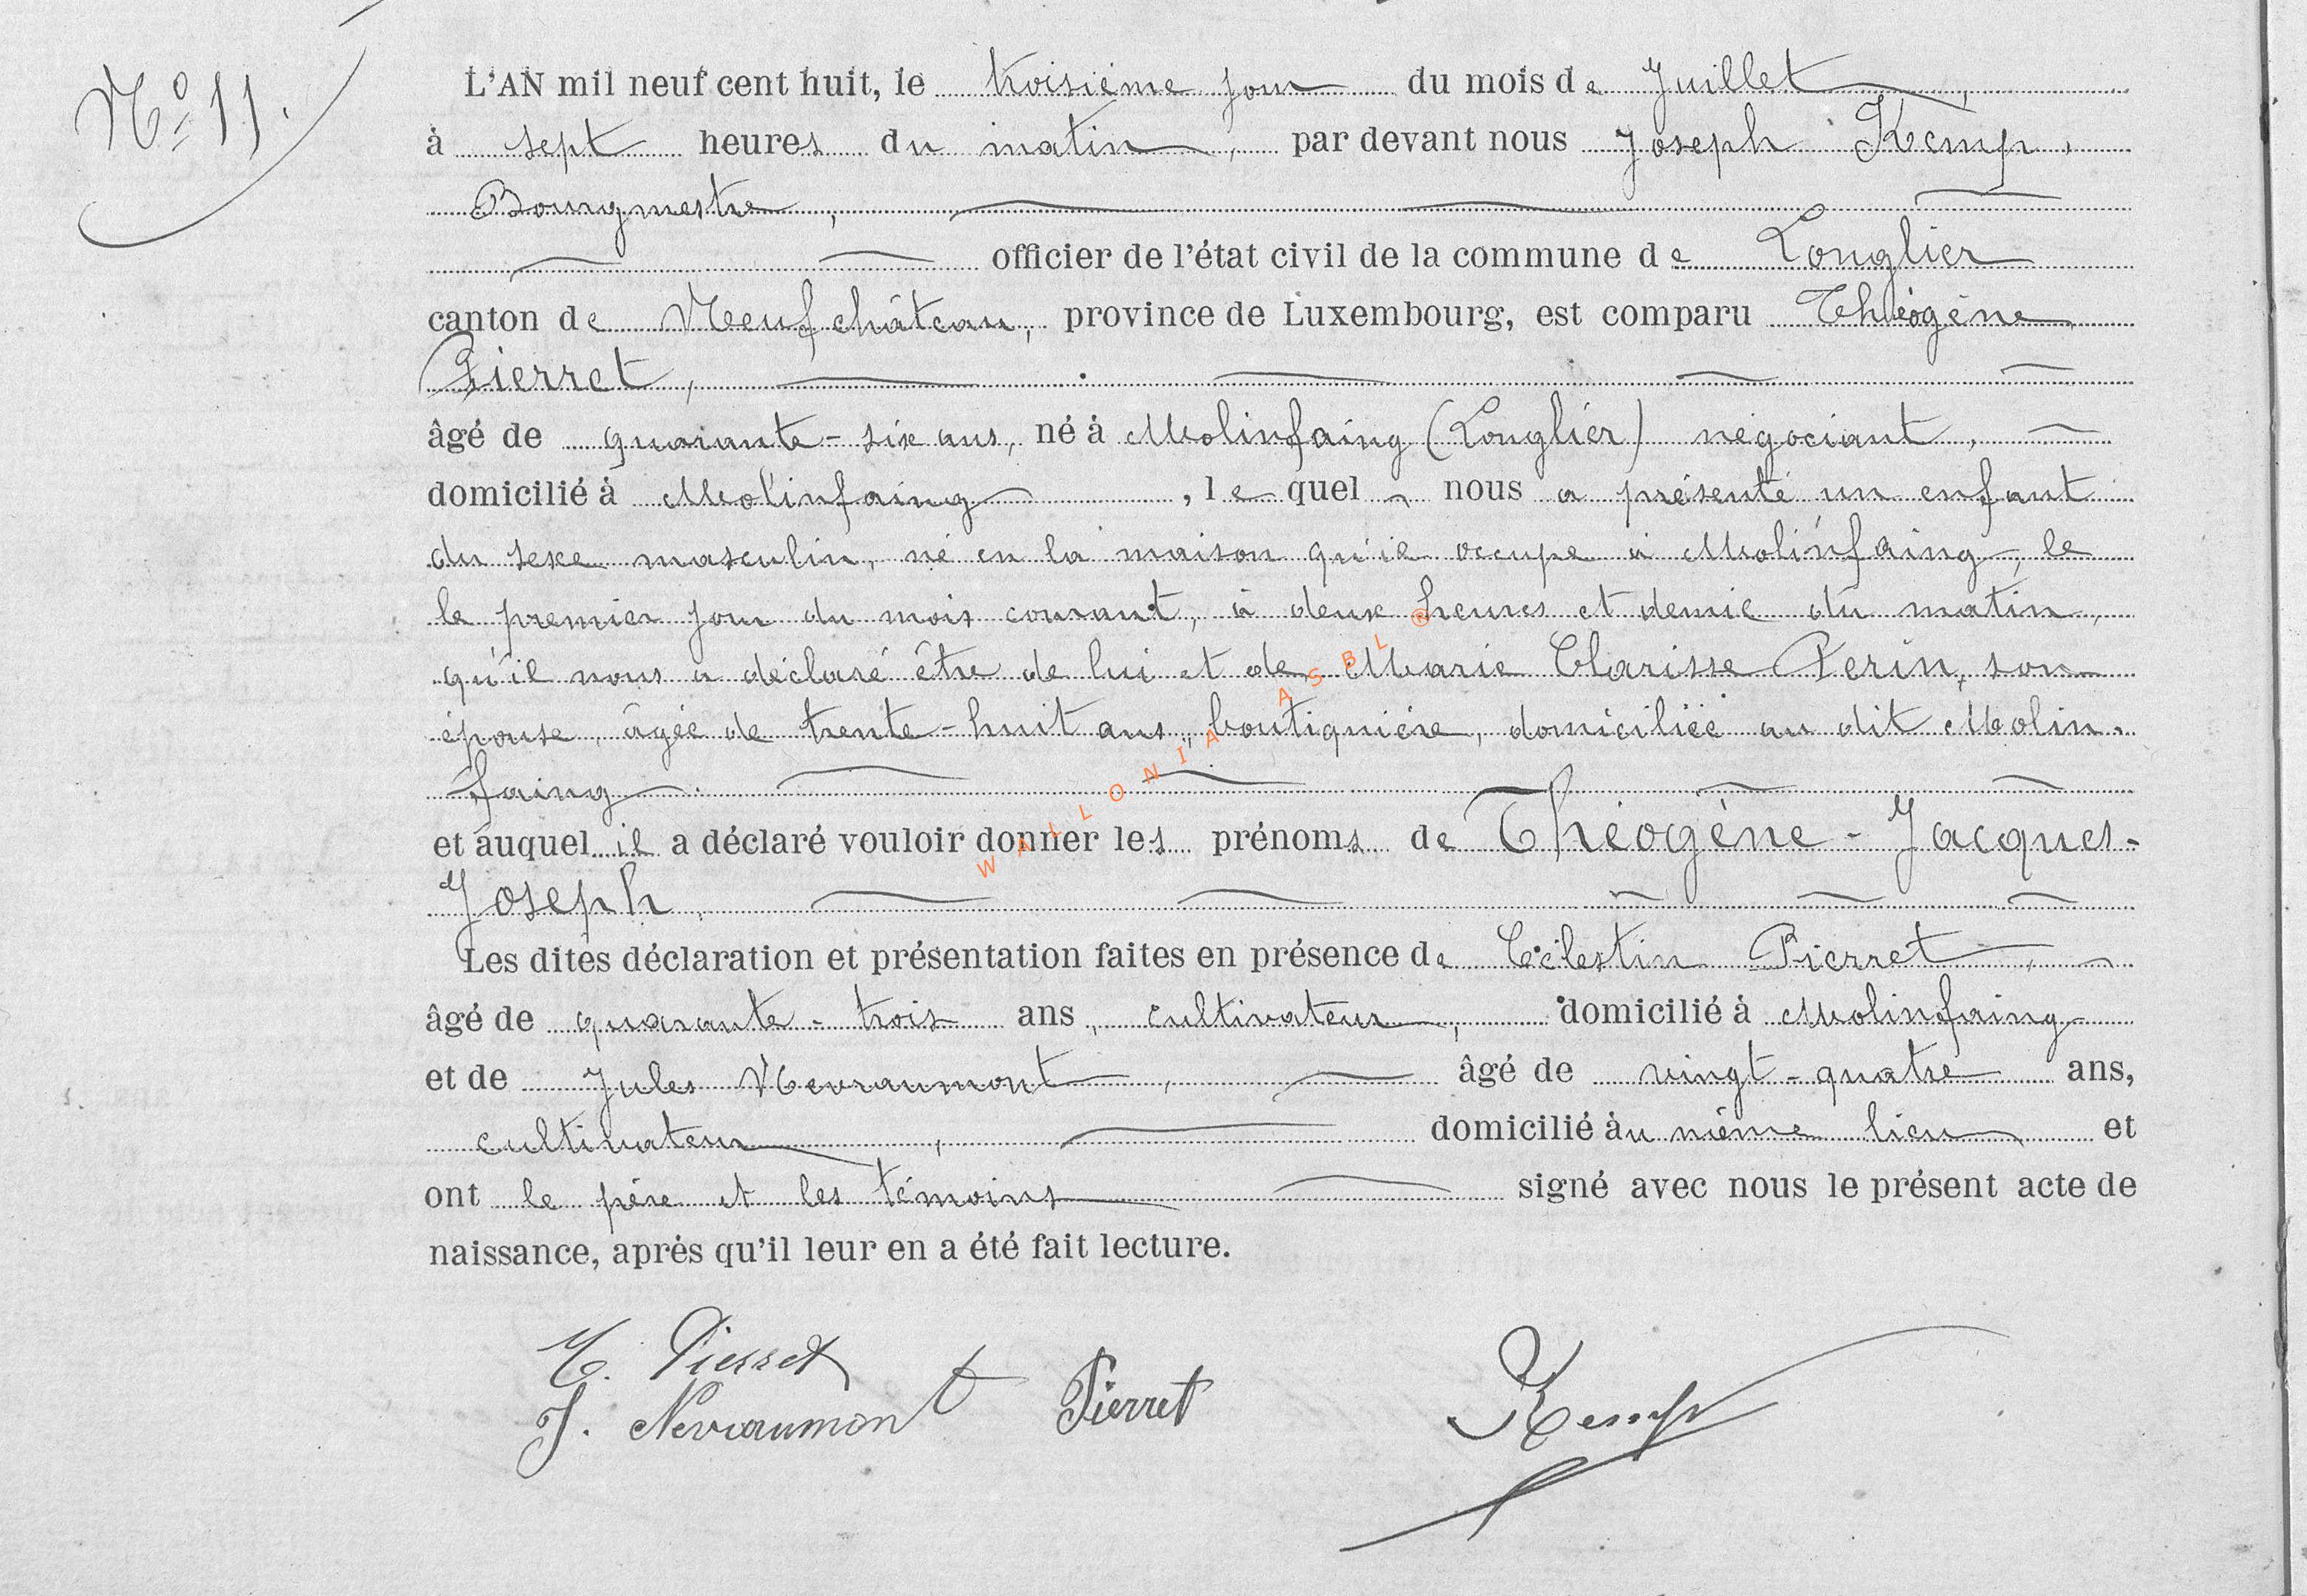 Nº 11.
L'AN mil neuf cent huit, le troisième jour du mois de Juillet,
à sept heures du matin, par devant nous Joseph Kemp,
Bourgmestre,
officier de l'état civil de la commune de Longlier
canton de Neufchâteau, province de Luxembourg, est comparu Théogène
Pierret,
âgé de quarante-six ans, né à Molinfaing (Longlier) négociant,
domicilié à Molinfaing, lequel nous a présenté un enfant
du sexe masculin, né en la maison qu'il occupe à Molinfaing, le
le premier jour du mois courant, à deux heures et demie du matin,
qu'il nous a déclaré être de lui et de Marie Clarisse Perin, son
épouse, âgée de trente-huit ans, boutiquière, domiciliée au dit Molin-
faing.
et auquel il a déclaré vouloir donner les prénoms de Théogène-Jacques-
Joseph.
Les dites déclaration et présentation faites en présence de Célestin Pierret,
âgé de quarante-trois ans, cultivateur, domicilié à Molinfaing
et de Jules Nevraumont, âgé de vingt-quatre ans,
cultivateur, domicilié àu même lieu et
ont le père et les témoins signé avec nous le présent acte de
naissance, après qu'il leur en a été fait lecture.
Pierret
J. Nevraumont Pierret Kemp
WALLONIA ASBL ®